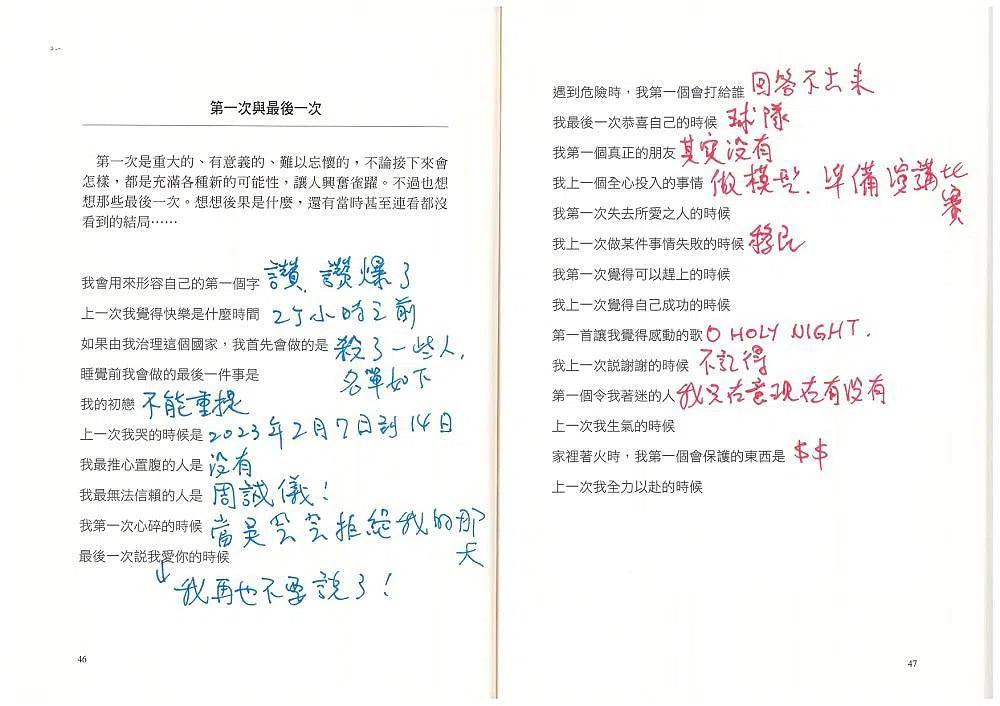 第一次與最後一次
第一次是重大的、有意義的、難以忘懷的，不論接下來會
怎樣，都是充滿各種新的可能性，讓人興奮雀躍。不過也想
想那些最後一次。想想後果是什麼，還有當時甚至連看都沒
看到的結局……
我會用來形容自己的第一個字 讚、讚爆了
上一次我覺得快樂是什麼時間 25小時之前
如果由我治理這個國家，我首先會做的是 殺了一些人，
名單如下
睡覺前我會做的最後一件事是
我的初戀 不能重提
上一次我哭的時候是 2023年2月7日到14日
我最推心置腹的人是 沒有
我最無法信賴的人是 周誠儀！
我第一次心碎的時候 當吳 拒絕我的那
天
最後一次説我愛你的時候
我再也不要說了！
46
遇到危險時，我第一個會打給誰 回答不出來
我最後一次恭喜自己的時候 球隊
我第一個真正的朋友 其实沒有
我上一個全心投入的事情 做模型、準備演講比
賽
我第一次失去所愛之人的時候
我上一次做某件事情失敗的時候 移民
我第一次覺得可以趕上的時候
我上一次覺得自己成功的時候
第一首讓我覺得感動的歌 O HOLY NIGHT.
我上一次説謝謝的時候 不記得
第一個令我著迷的人 我只在意現在有沒有
上一次我生氣的時候
家裡著火時，我第一個會保護的東西是 $$
上一次我全力以赴的時候
47